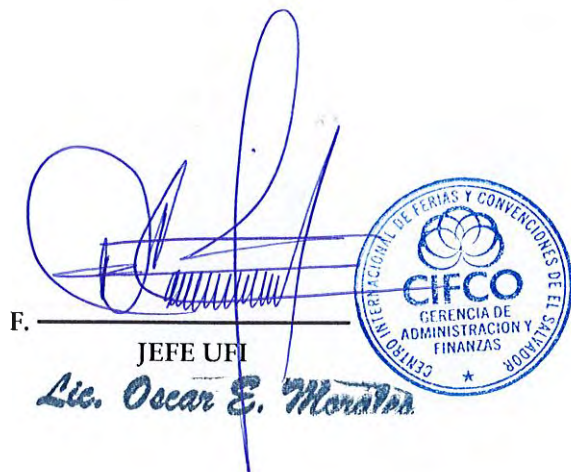 F.
JEFE UFI
Lic. Oscar E. Morales
CENTRO INTERNACIONAL DE FERIAS Y CONVENCIONES DE EL SALVADOR
CIFCO
GERENCIA DE
ADMINISTRACION Y
FINANZAS